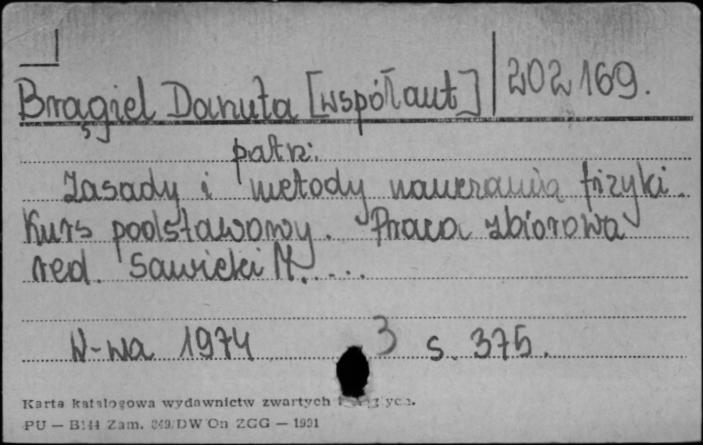 Brągiel Danuta [współaut] 202169.
patrz:
Zasady i metody nauczania fizyki.
Kurs podstawowy. Praca zbiorowa
red. Sawicki M. ....
W-wa 1974 3 s. 375.
Karta katalogowa wydawnictw zwartych
PU — B144 Zam. DW On ZGG — 1991